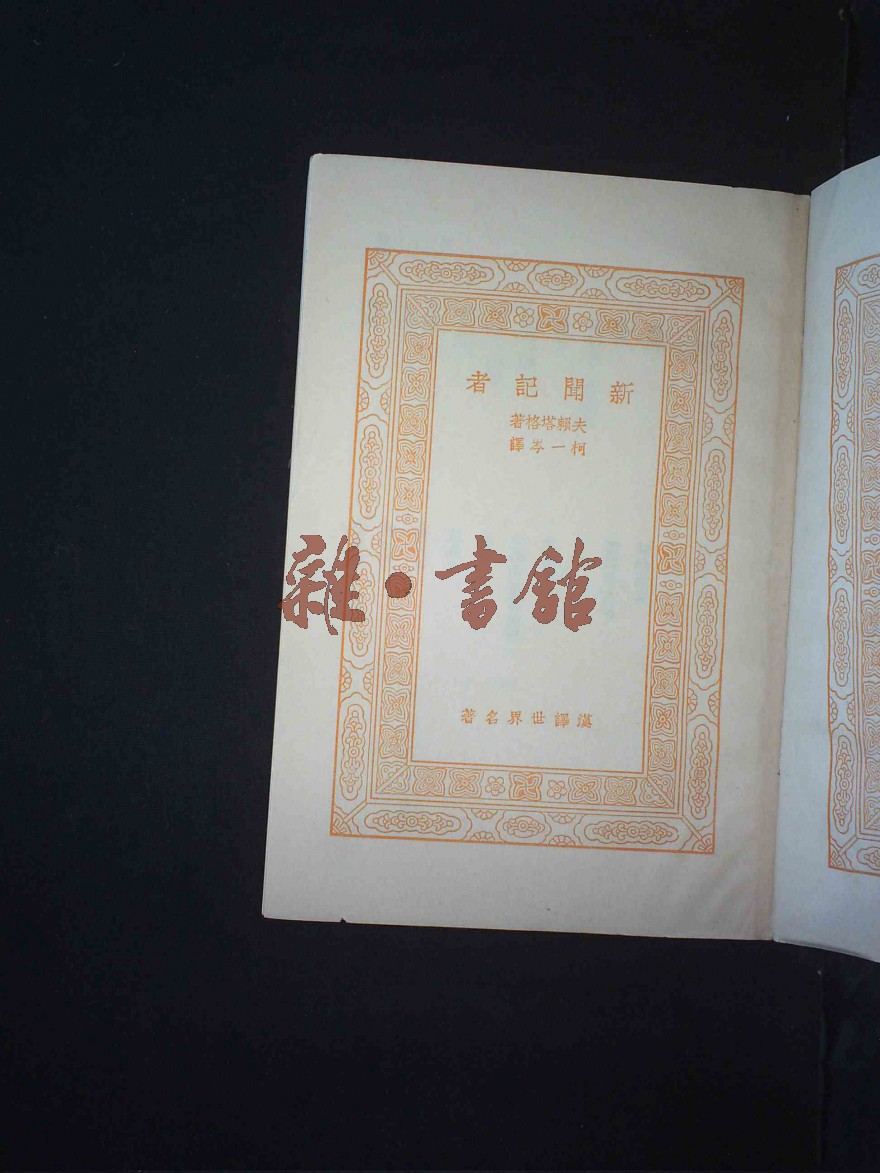 新聞記者
夫賴塔格著
柯一岑譯
雜·書館
漢譯世界名著